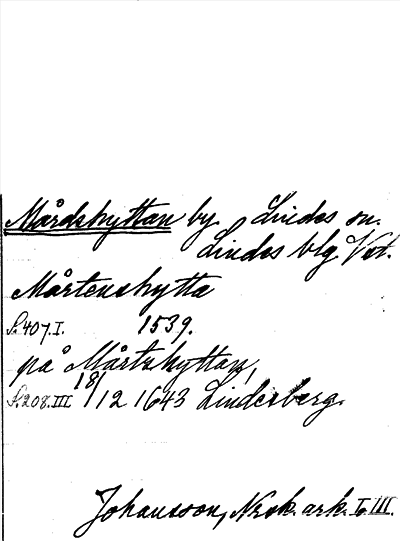 Mårdshyttan by. Lindes sn.
Lindes blg Vst.
Mårtenshytta
S. 407. I. 1539.
på Mårtshyttan,
S. 208. III 18/12 1643 Lindesberg.
Johansson, Nrsk. ark. I o III.